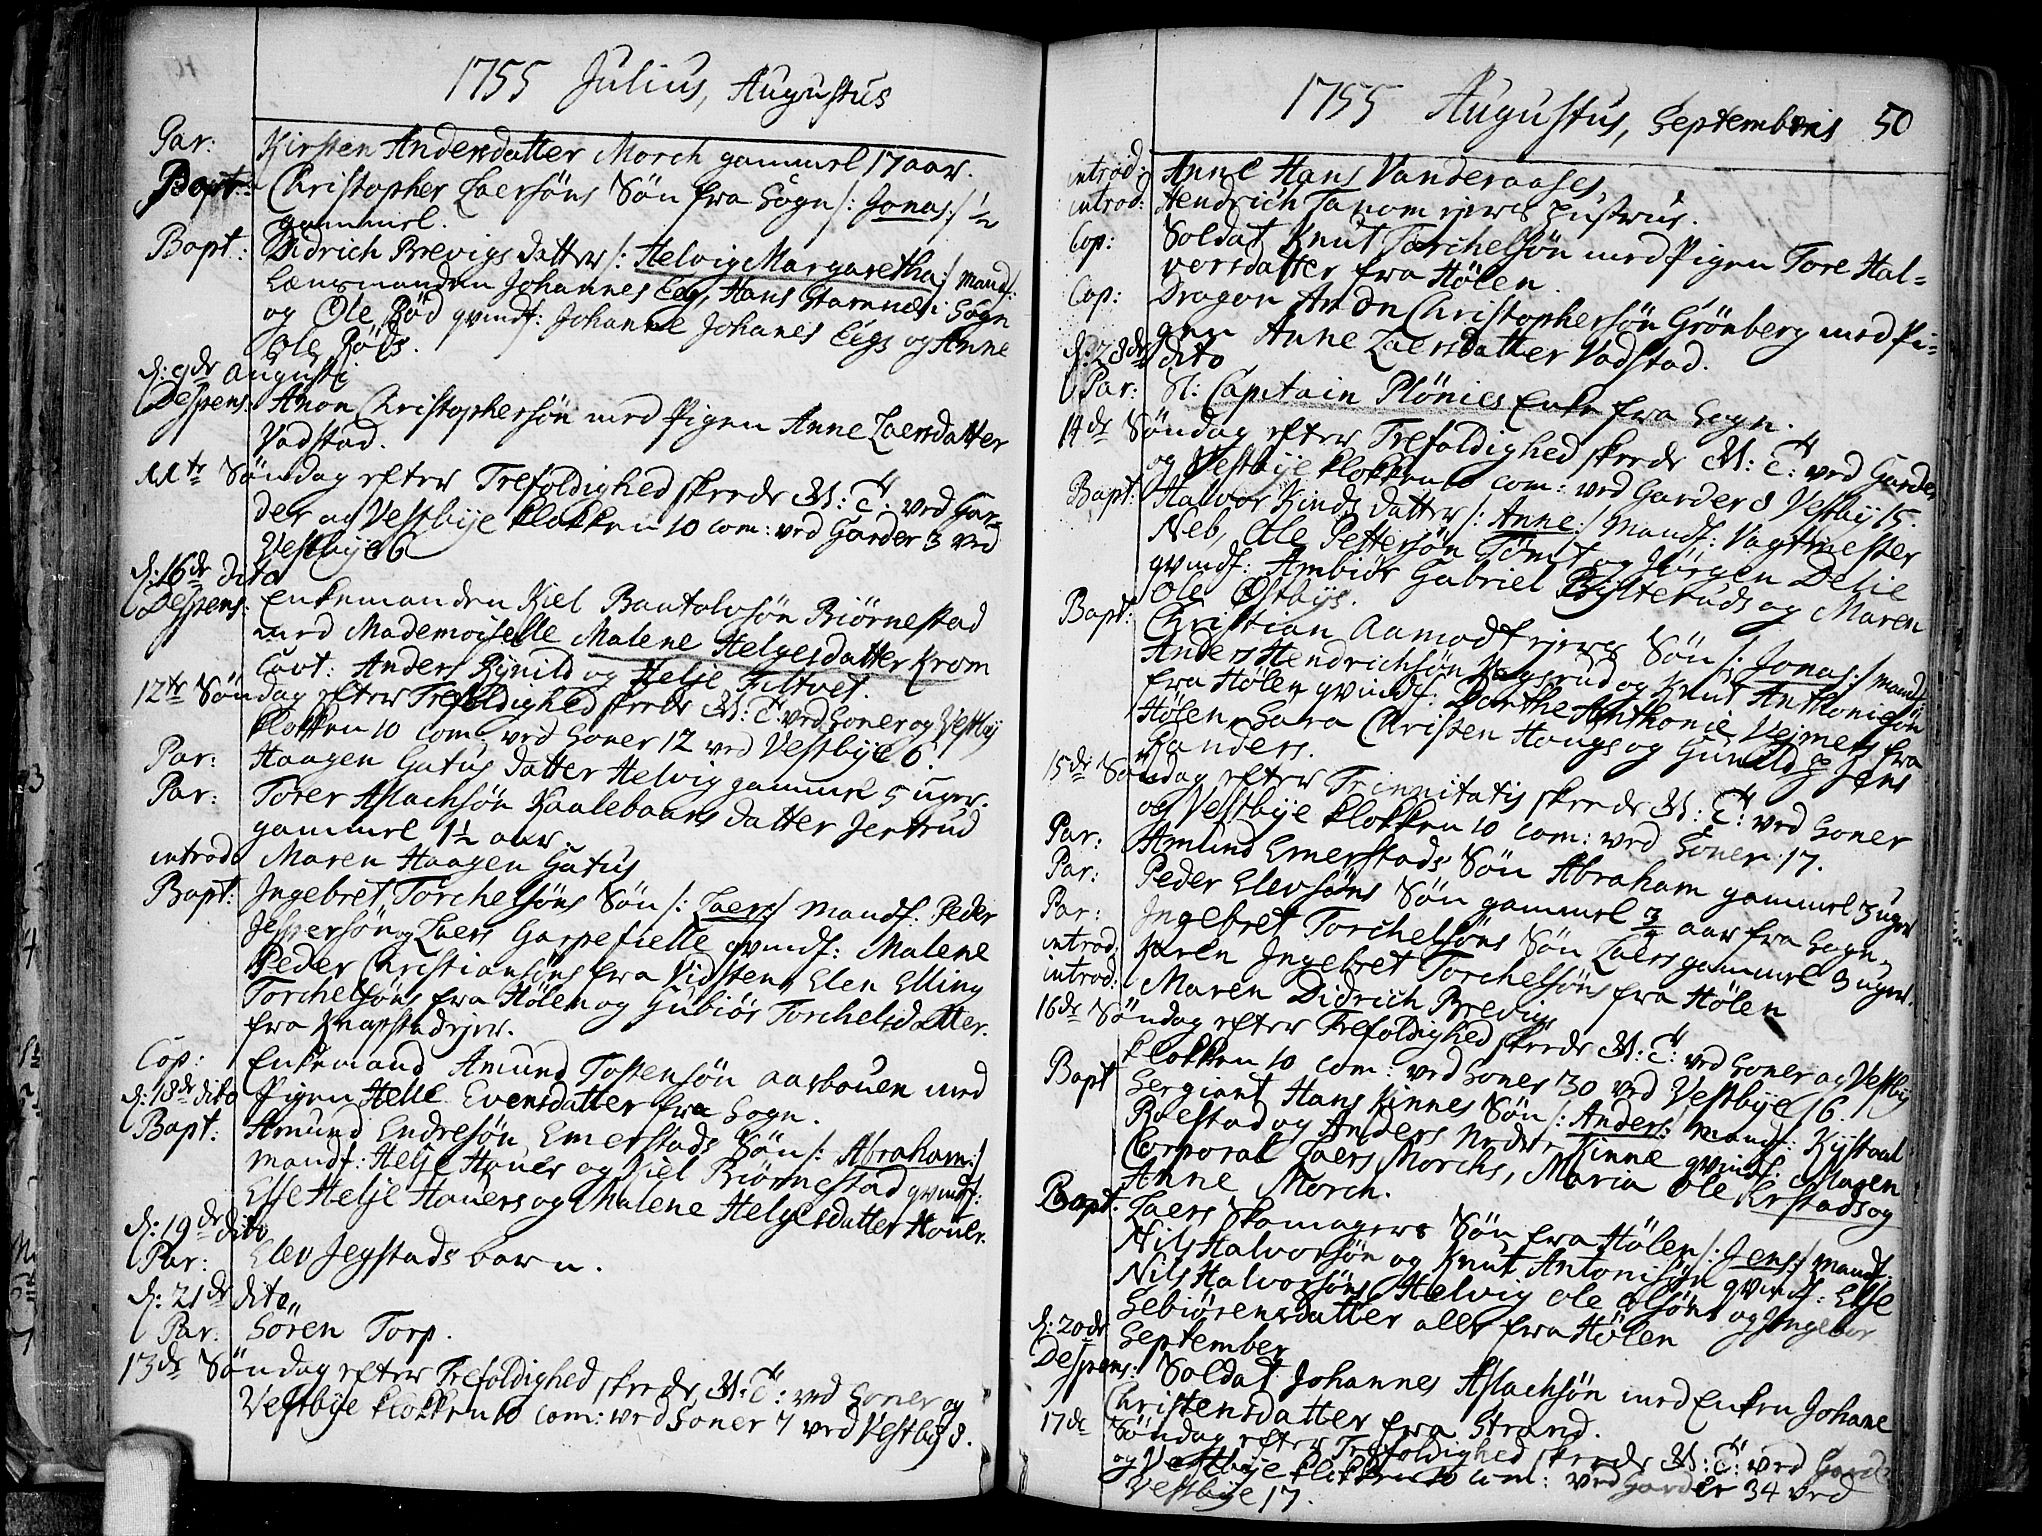 1755 Julius, Augustus
Par: Kirsten Andersdatter Morch gammel 17 aar.
Bapt: Christopher Laersøns Søn fra Sogn /: Jonas :/ ½
gammel.
Bapt: Didrich Brevigs datter /: Helvig Margaretha :/ mandf:
Lensmanden Johannes Eeg, Hans Garnnæs i Sogn
og Ole Rød qvindf: Johanne Johanes Eegs og Anne
Ole Røds.
d: 9de Augusti
Despens: Anon Christophersøn med Pigen Anne Laersdatter
Vadstad.
11te Søndag efter Trefoldighed skeede M: T: ved Gar-
der og Vestbye klokken 10 com: ved Garder 3 ved
Vestbye 6
d: 16de dito
Despens: Enkemanden Kiel Bantolvsøn Biørnestad
med Mademoiselle Malene Helgesdatter Krom
Cavt: Anders Rynild og Helje Filtvet.
12te Søndag efter Trefoldighed skeede M: T: ved Soner og Vestby
klokken 10 com: ved Soner 12 ved Vestbye 6.
Par: Haagen Gutus datter Helvig gammel 5 uger.
Par: Torer Aslachsøn Kaalebaans datter Jertrud
gammel 1½ aar.
introd: Maren Haagen Gutus
Bapt: Ingebret Torchelsøns Søn /: Laers :/ mandf: Peder
Jespersøn og Laers Garpefielle qvindf: Malene
Peder Christiansøns fra Vidsten, Elen Elling
Torchelsøns fra Hølen og Gubiør Torchelsdatter
fra Knapstadejer.
Cop: Enkemand Amund Tostensøn aarbouen med
d: 18de dito Pigen Helle Evensdatter fra Sogn.
Bapt: Amund Endresøn Emerstads Søn /: Abraham :/
mandf: Helje Houer og Kiel Biørnestad qvindf:
Else Helje Houers og Malene Helgesdatter Houer.
d: 19de dito
Par: Elev Jegstads barn.
d: 21de dito
Par: Sören Torp.
13de Søndag efter Trefoldighed skeede M: T: ved Soner og
Vestbye klokken 10 com: ved Soner 7 ved Vestby 8.
1755 Augustus, Septembris 50
introd: Anne Hans Vanderaases
introd: Hendrich Tanom ejers hustrue.
Cop: Soldat Knut Torchelsøn med Pigen Tore Hal-
vorsdatter fra Hølen.
Cop: Dragon Anon Christophersøn Grönberg med Pi-
gen Anne Laersdatter Vadstad.
d: 28de dito
Par: Sl: Capitain Plönies Enke fra Sogn.
14de Søndag efter Trefoldighed skeede M: T: ved Garder
og Vestbye klokken 10 com: ved Garder 8 Vestby 15.
Bapt: Halvor Kinds datter /: Anne :/ mandf: Vagtmester
Neb, Ole Pettersøn Tømt og Jörgen Delie
qvindf: Ambiör Gabriel Rysteruds og Maren
Ole Østbys.
Bapt: Christian Aamodt ejers Søn /: Jonas :/ mandf:
Anders Hendrichsøn Kagsrud og Knut Anthonisøn
fra Hølen qvindf: Dorthe Anthonie Vejmers fra
Hølen, Sara Christen Hougs og Gunild Jens
Randers.
15de Søndag efter Trinnitatis skeede M: T: ved Soner
og Vestbye klokken 10 com: ved Soner 17.
Par: Amund Emerstads Søn Abraham gammel 3 uger
Par: Peder Elevsøns Søn gammel ¾ aar fra Sogn.
Par: Ingebret Torchelsøns Søn Laers gammel 3 uger.
introd: Karen Ingebret Torchelsøns fra Hølen
introd: Maren Didrich Brevig
16de Søndag efter Trefoldighed skeede M: T: ved Soner og Vestby
klokken 10 com: ved Soner 30 ved Vestbye 16.
Bapt Sergiant Hans Kinnes Søn /: Anders: mandf: Kystaal
Roestad og Anders Nedre Kinne qvindf: Maren
Corporal Laers Morchs, Maria Ole Krstads og
Anne Morch.
Bapt: Laers Skomagers Søn fra Hølen /: Jens :/ mandf:
Nils Halvorsøn og Knut Antonisøn qvindf: Else
Nils Halvorsøns, Helvig Ole Olsøns og Ingebor
Sebiørensdatter alle fra Hølen
d: 20de September
Despens: Soldat Johannes Aslachsøn med Enken Johane
Christensdatter fra Strand.
17de Søndag efter Trefoldighed skeede M: T: ved Gard
og Vestbye klokken 10 com: ved Garder 34 ved
Vestbye 17.